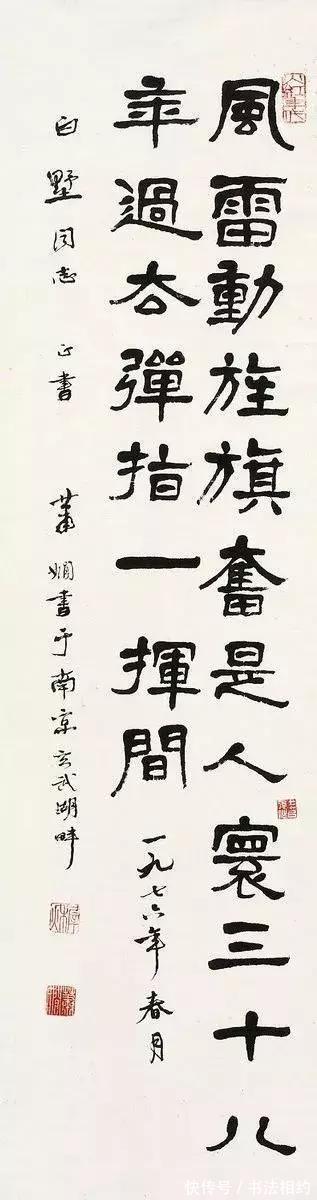 風雷動旌旗奮是人寰三十八
年過去彈指一揮間
一九七六年春月
白墅同志正書
蕭嫻書于南京玄武湖畔
快传号/书法相约